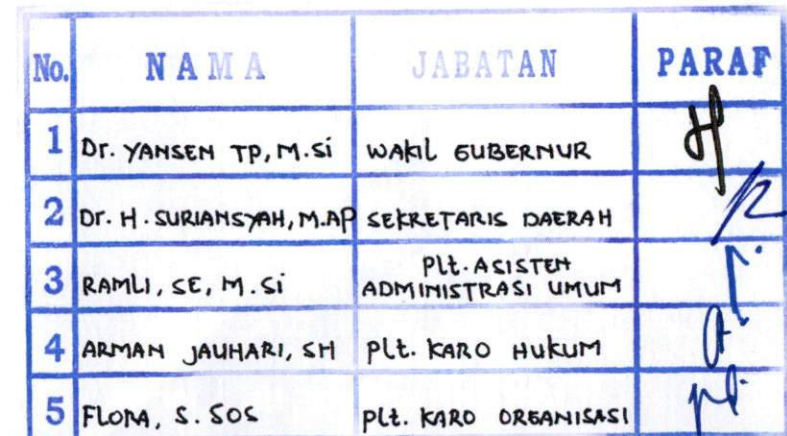 No. NAMA JABATAN PARAF
1 Dr. YANSEN TP, M.Si WAKIL GUBERNUR
2 Dr. H. SURIANSYAH, M.AP SEKRETARIS DAERAH
3 RAMLI, SE, M.Si Plt. ASISTEN
ADMINISTRASI UMUM
4 ARMAN JAUHARI, SH Plt. KARO HUKUM
5 FLORA, S. SOS Plt. KARO ORGANISASI